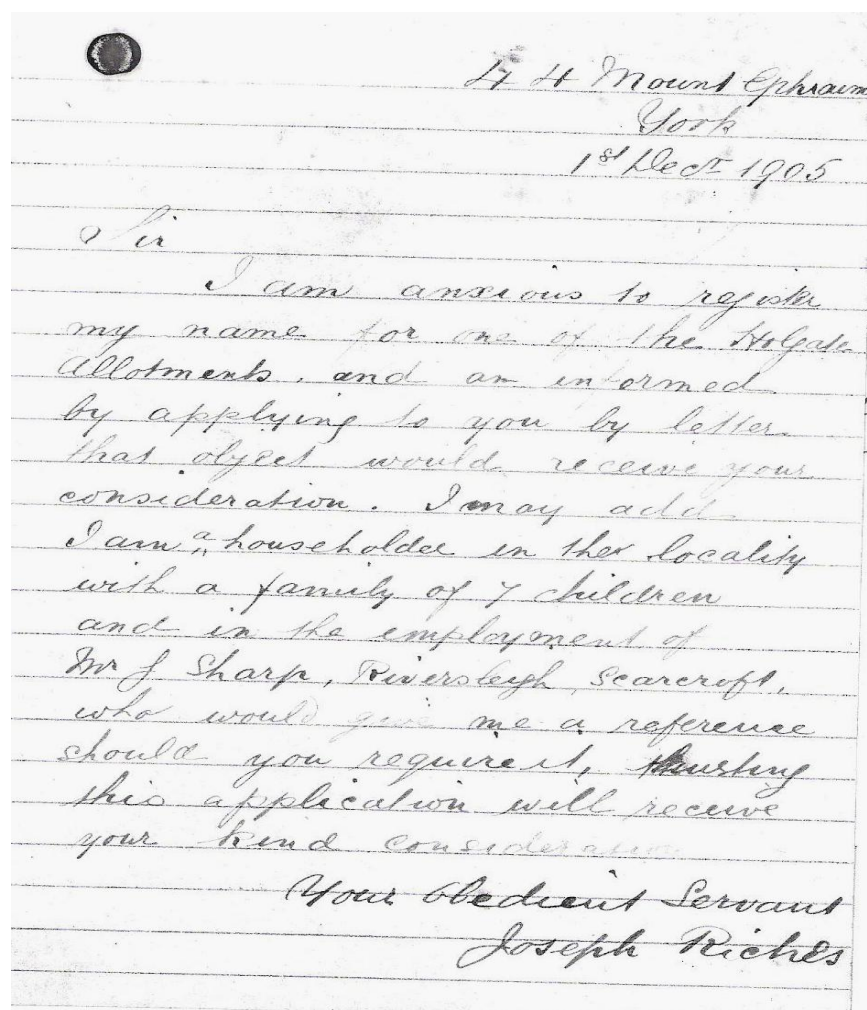 44 Mount Ephraim
York
1st Decr 1905
Sir
I am anxious to register
my name for one of the Holgate
Allotments. and am informed
by applying to you by letter
that object would receive your
consideration. I may add
I am a householder in the locality
with a family of 7 children
and in the employment of
Mr J Sharp, Riversleigh, Scarcroft,
who would give me a reference
should you require it, trusting
this application will receive
your kind consideration
Your Obedient Servant
Joseph Riches